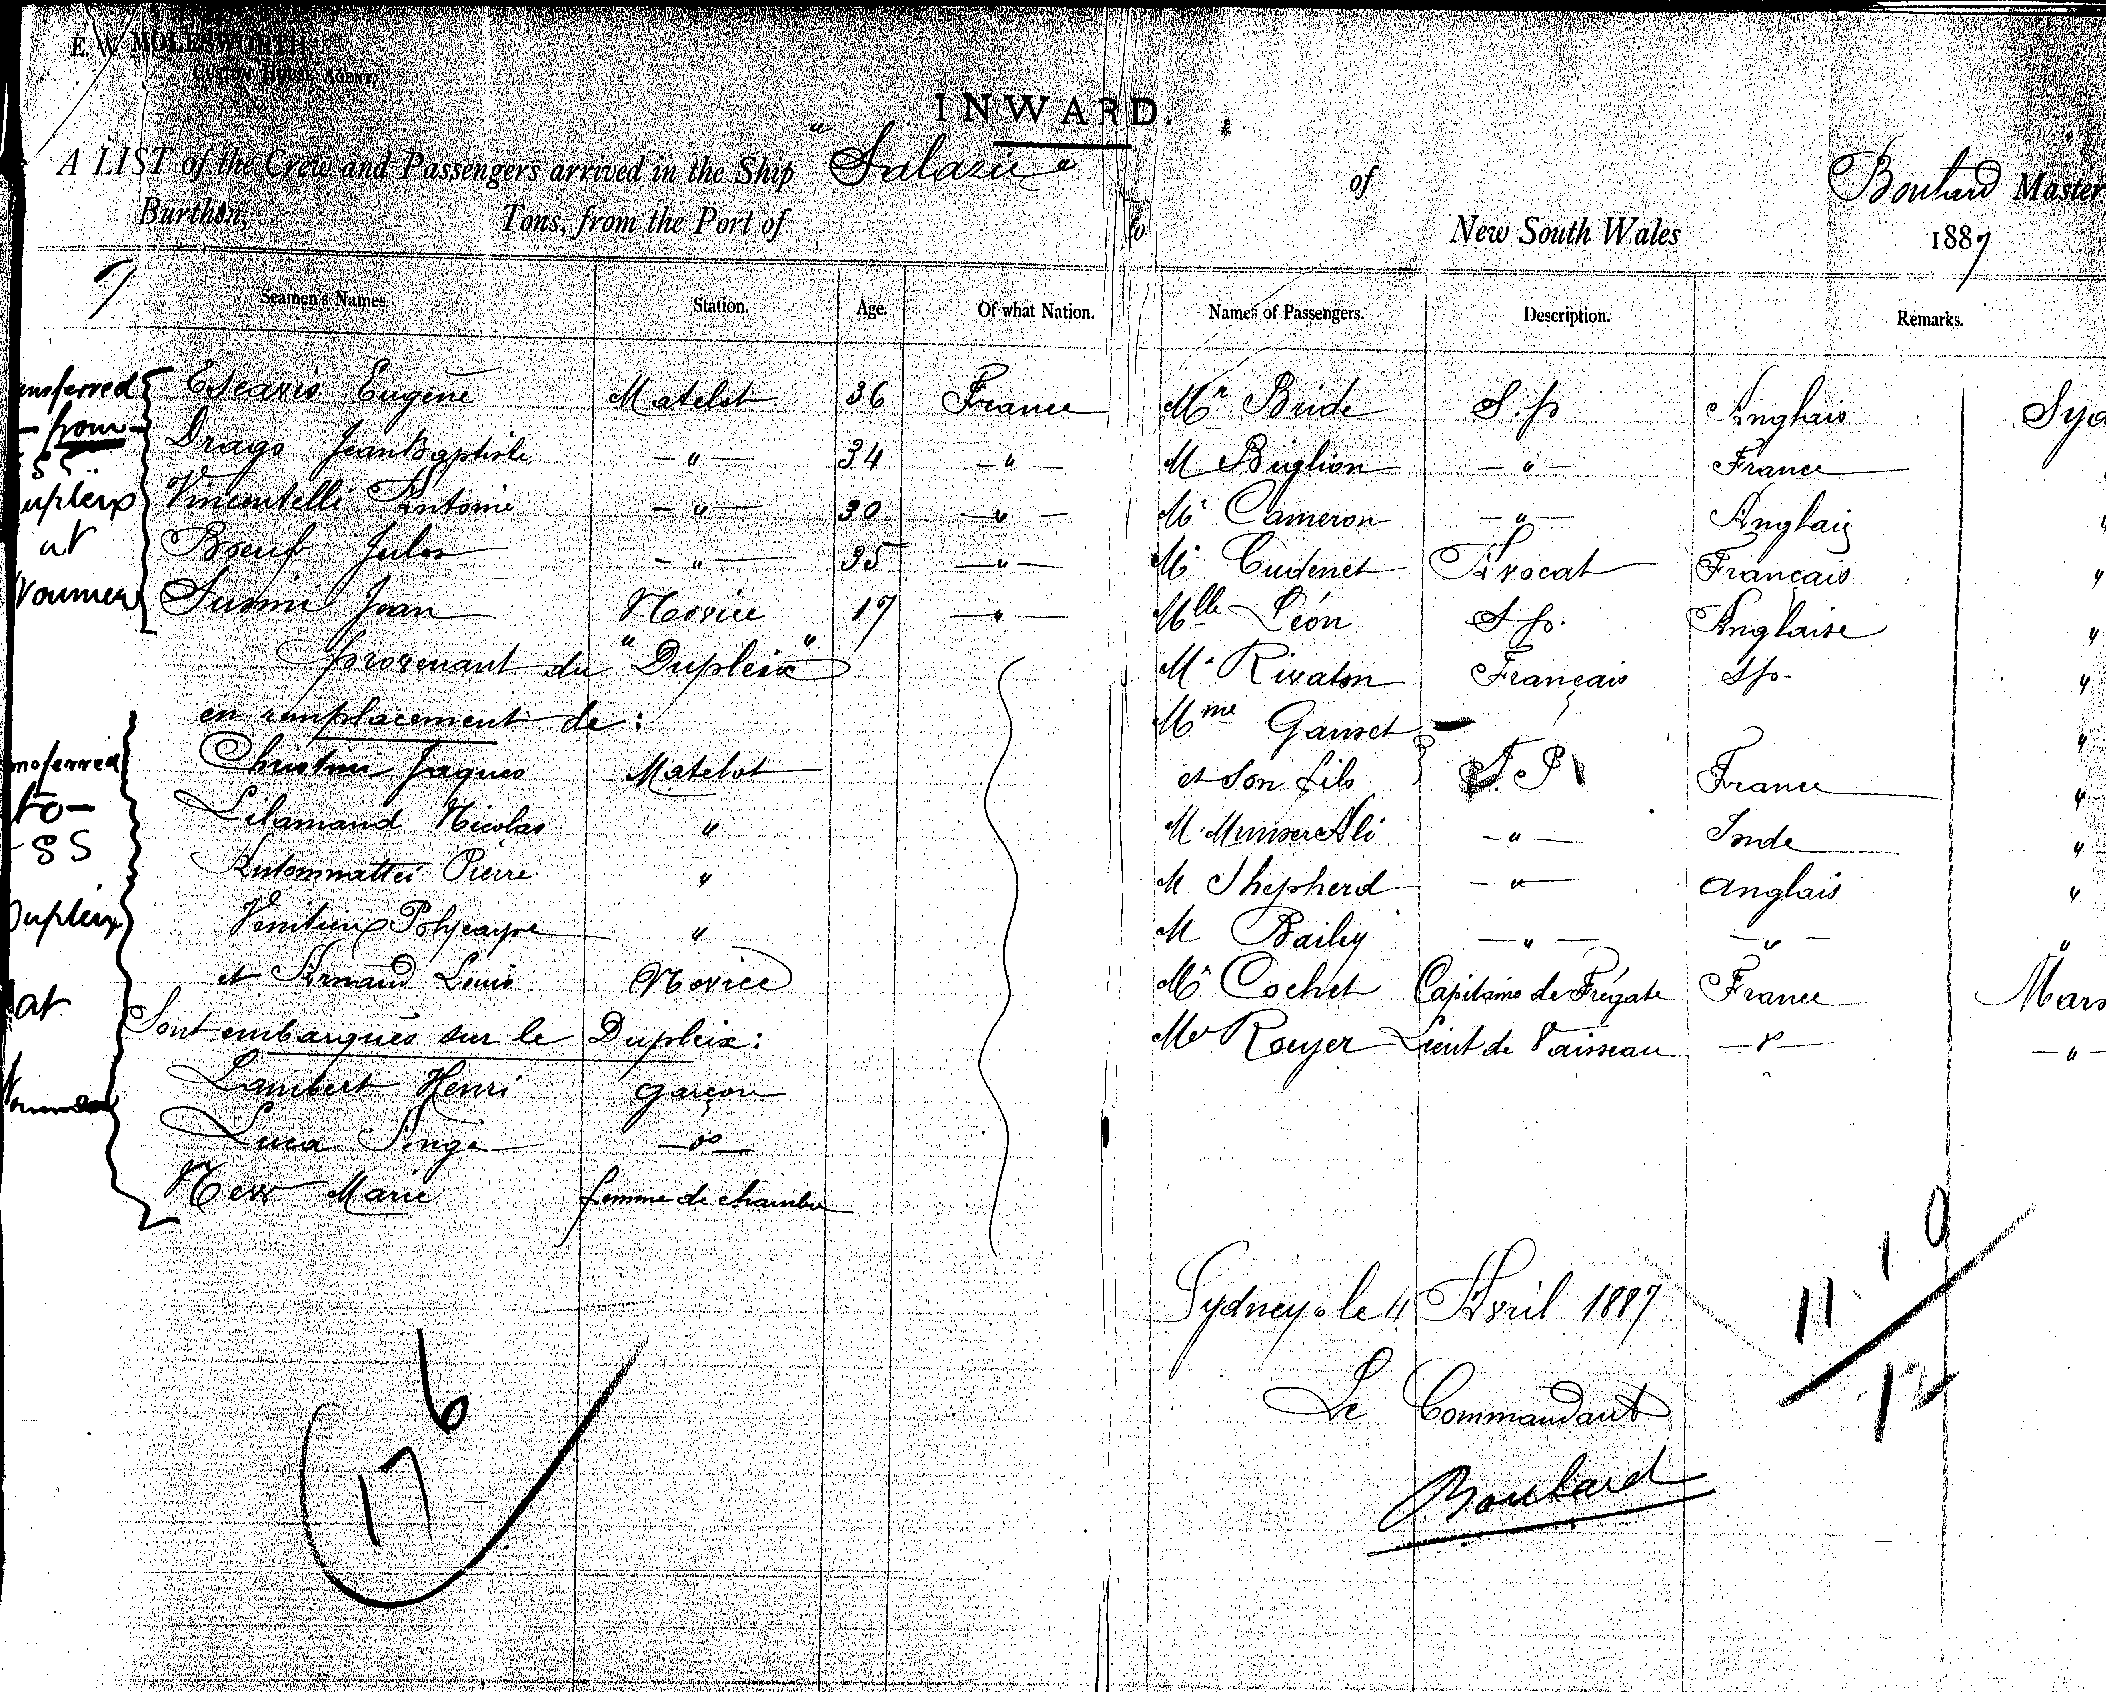 E. W. MOLESWORTH
CUSTOM HOUSE AGENT.
INWARD.
A LIST of the Crew and Passengers arrived in the Ship "Salazie" of Boulard Master
Burthen, Tons, from the Port of to New South Wales 1887
7
Seamen's Names. Station. Age. Of what Nation.
Eugène Matelot 36 France
Drago Jean Baptiste —"— 34 —"—
Vincentelli Antoine —"— 30 —"—
Boeuf Jules —"— 35 —"—
Susini Jean Novice 17 —"—
provenant du "Dupleix"
en remplacement de :
Jaques Matelot
Lilamand Nicolas "
Antommattei Pierre "
Polycarpe "
et Arnaud Louis Novice
Sont embarqués sur le Dupleix :
Lambert Henri garçon
Luca —do—
Marie femme de chambre
ansferred
— from —
SS
upleix
at
Noumea
nsferred
to —
SS
Dupleix
at
6
17
Names of Passengers. Description. Remarks.
Mr Bride S.p Anglais Syd
M Buglion —"— France "
Mr Cameron —"— Anglais "
Mr Cudenet Avocat Français "
Mlle Léon S.p. Anglaise "
Mr Rivaton Français S.p. "
Mme Ganset "
et son fils S.P France "
M. Munser Ali —"— Inde "
M Shepherd —"— Anglais "
M Bailey —"— —"— "
Mr Cochet Capitaine de Frégate France Mars
Mr Rouyer Lieut de Vaisseau —"— —"—
Sydney le 4 Avril 1887
Le Commandant
Boulard
11 1 0
12